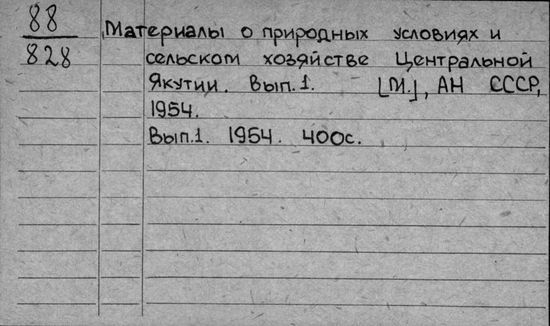 88
828
Материалы о природных условиях и
сельском хозяйстве Центральной
Якутии. Вып.1. [М.], АН СССР,
1954.
Вып.1. 1954. 400с.